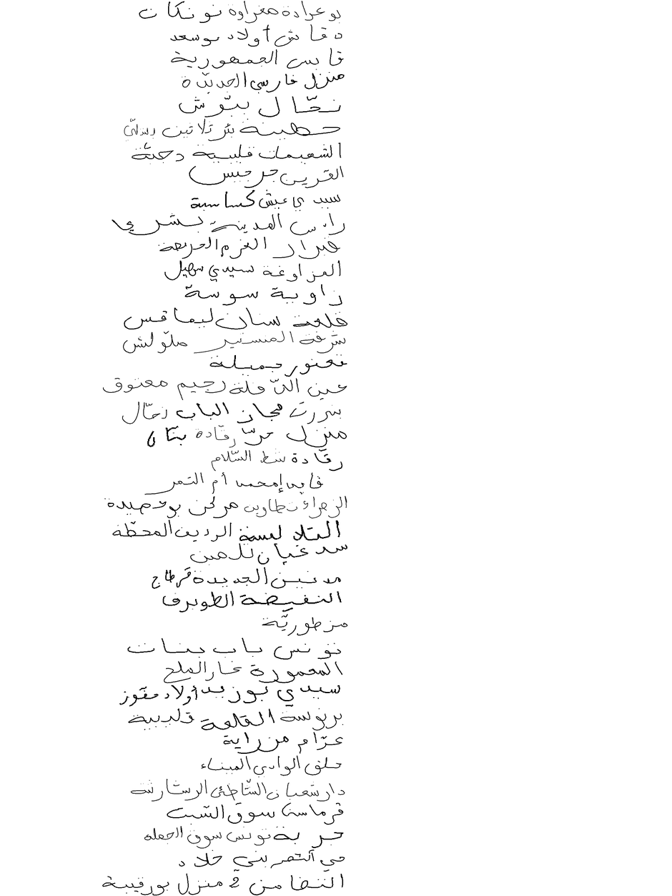 بوعرادة مغراوة نونكات
دقاش أولاد بوسعد
قابس الجمهورية
منزل فارسي الحديثة
نحّال بتّوش
حطينة بئر ثلاثين
الشعيمات قليبية دخّة
القرين جرجيس
سيدي عيش كساسبة
رأس المدينة بشري
ضرار القرم العريعة
المزاوغة سيدي سهيل
زاوية سوسة
قلعة سنان ليماقس
شرقة المنستير ملّولش
تعنور جميلة
عين الدّفلة رحيم معتوق
بنزرت مجاز الباب رحّال
منزل حرّ رقّادة بتّان
رقّادة شط السّلام
فايد إمحمد أم التمر
الزهراء تطاوين مركز بوعصيدة
البلاد ليسنة الرديف المحطّة
سد غيان للمين
مدنين الجديدة قرطاج
النفيضة الطويرف
مزطوريّة
تونس باب بنات
المعمورة غار الملح
سيدي بوزيد أولاد مفوز
برنوسة القلعة قليبية
عرّام مزراية
حلق الوادي الميناء
دار شعبان الشّاطئ الرشارشة
قرماسة سوق السّبت
جربة تونس سوق الجملة
حي النصر بني خلاد
التضامن 2 منزل بورقيبة